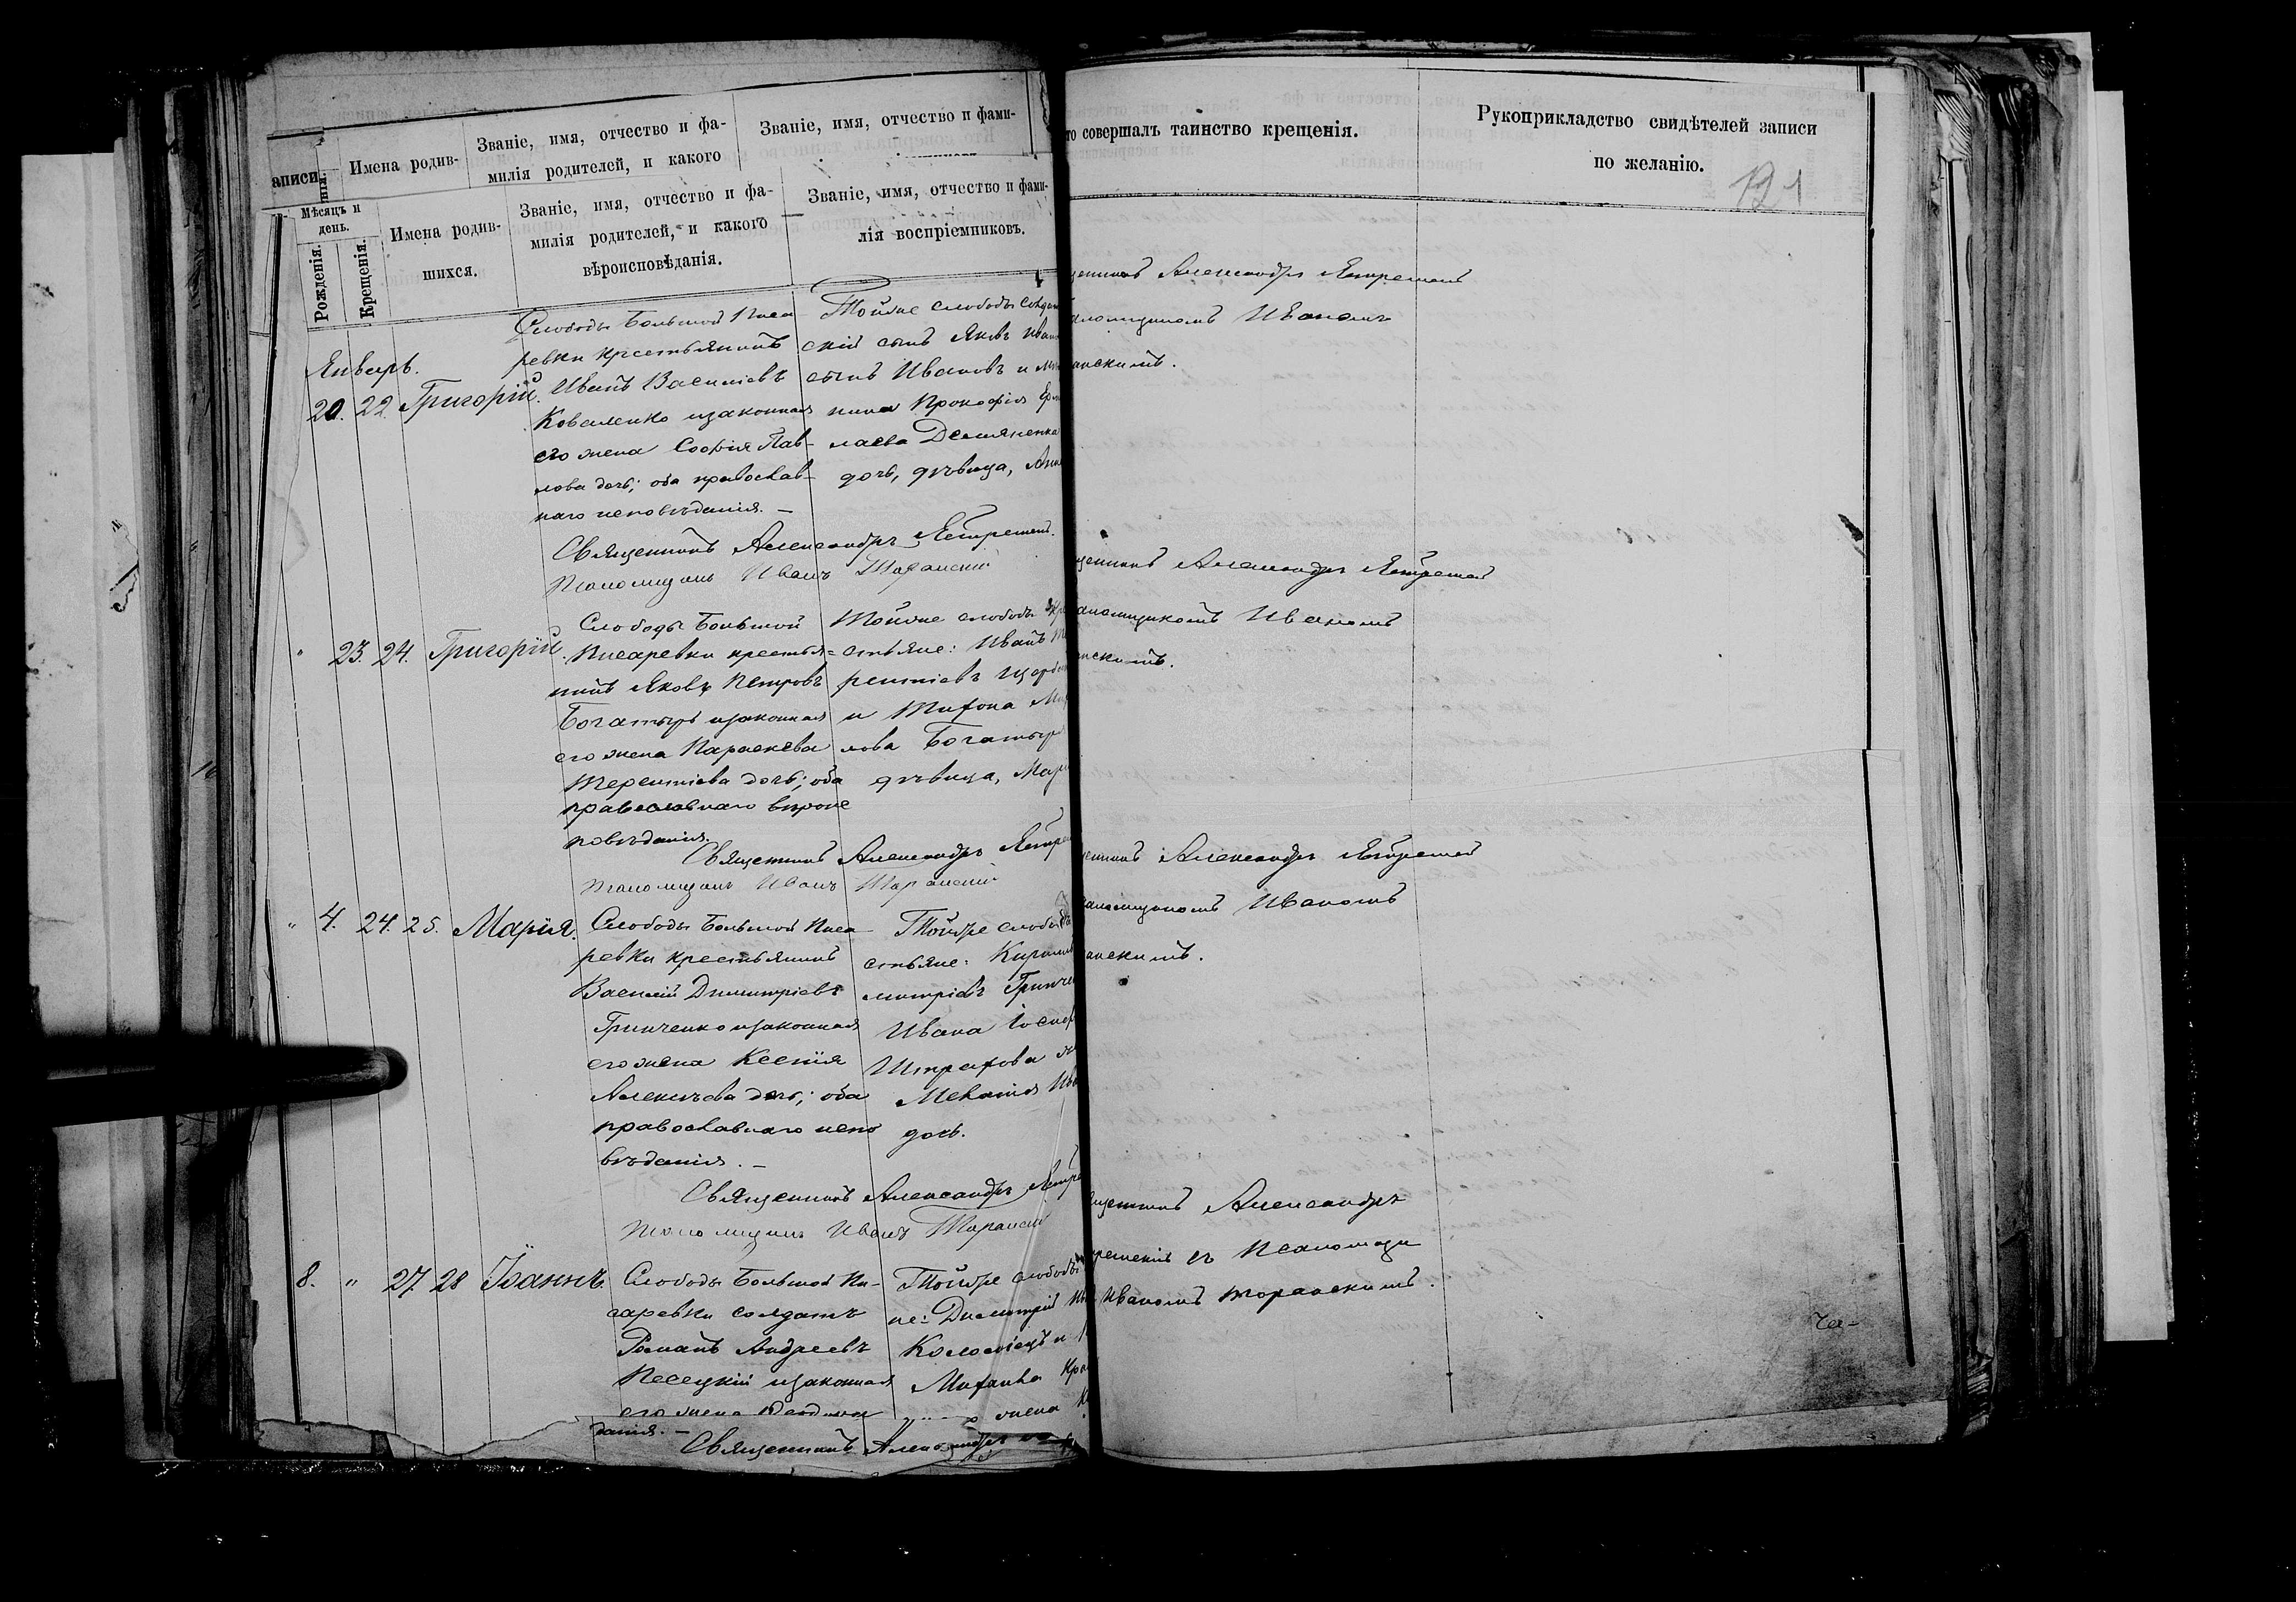 аписи
нія.
Имена родив-
Званіе, имя, отчество и фа-
милія родителей, и какого
Званіе, имя, отчество и фами-
Мѣсяцъ и
день.
Рожденія.
Крещенія.
Имена родив-
шихся.
Званіе, имя, отчество и фа-
милія родителей, и какого
вѣроисповѣданія.
Званіе, имя, отчество и фами-
лія воспріемниковъ.
то совершалъ таинство крещенія.
Рукоприкладство свидѣтелей записи
по желанію.
121
Январь.
20. 22. Григорій.
Слободы Большой Писа
ревки крестьянинъ
Иванъ Василіевъ
Коваленко и законная
его жена Софія Пав-
лова дочь; оба православ-
наго исповѣданія. —
Тойже слободы солдат
скій сынъ Яковъ Иван
сынъ Ивановъ и
Прокофія
лаева Демяненка
дочь, дѣвица, Анн
Священникъ Александръ
Псаломщикъ Иванъ Таранскій
щенникъ Александръ
псаломщикомъ Иваномъ
анскимъ.
" 23. 24. Григорій.
Слободы Большой
Писаревки крестья=
нинъ Яковъ Петровъ
Богатырь и законная
его жена Параскева
Терентіева дочь; оба
православнаго вѣроис
повѣданія.
Тойже слободы кре
стьяне: Иванъ Те
рентіевъ
и Тихона Ми
лова Богатыр
дѣвица, Мар
Священникъ Александръ
Псаломщикъ Иванъ Таранскій
щенникъ Александръ
аломщикомъ Иваномъ
нскимъ.
" 4. 24. 25. Марія.
Слободы Большой Писа
ревки крестьянинъ
Василій Димитріевъ
Гринченко и законная
его жена Ксенія
Алексѣева дочь; оба
православнаго испо
вѣданія. —
Тойже слобод
стьяне: Кирилл
митріевъ Гринче
Ивана Іосиф
Штрафова ж
Меланія Ив
дочь.
Священникъ Александръ
Псаломщикъ Иванъ Таранскій
щенникъ Александръ
аломщикомъ Иваномъ
анскимъ.
8. " 27 28 Іоаннъ.
Слободы Большой Пи-
саревки солдатъ
Романъ Андреевъ
Песецкій и законная
его жена
данія. —
Тойже слободы
не: Димитрій Ив
Коломіецъ и
Михаила Кра
жена
Священникъ Александръ
щенникъ Александръ
съ Псаломщи
Иваномъ Таранскимъ.